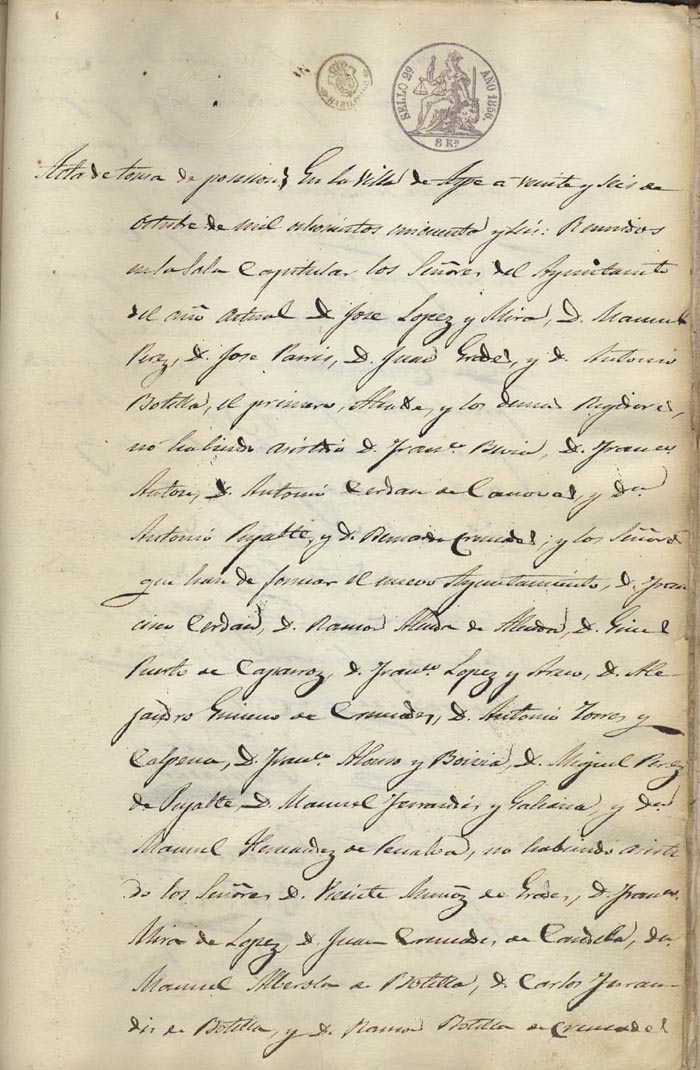 SELLO 2º AÑO 1856.
8 Rs
HABILITADO
Acta de toma de posesion; En la Villa de Aspe a veinte y seis de
Octubre de mil ochocientos cincuenta y seis: Reunidos
en la Sala Capitular los Señores del Ayuntamto
del año actual D. Jose Lopez y Mira, D. Manuel
Perez, D. Jose Parris, D. Juan Gredes, y D. Antonio
Botella, el primero, Alcalde, y los demas Regidores,
no habiendo asistido D. Franco D. Franco
D. Antonio Cerdan de Canovas, y Dn
Antonio Pujalte, y D. Cremades; y los Señores
que han de formar el nuevo Ayuntamiento, D. Fran
cisco Cerdan, D. Ramon Almda de Almda, D. Ginel
Puerto de Caparroz, D. Franco Lopez y D. Ale-
jandro Gimeno de Cremades, D. Antonio Torres y
Calpena, D. Franco Alonso y D. Miguel Perez
de Pujalte, D. Manuel Jurandis y Galiana, y Dn
Manuel Hernandez de Penalva, no habiendo asisti
do los Señores D. Vicente Muñoz de Gredes, D. Franco
Mira de Lopez, D. Juan Cremades de Candela, Dn
Manuel Alberola de Botella, D. Carlos Juran-
dis de Botella, y D. Ramon Botella de Cremades